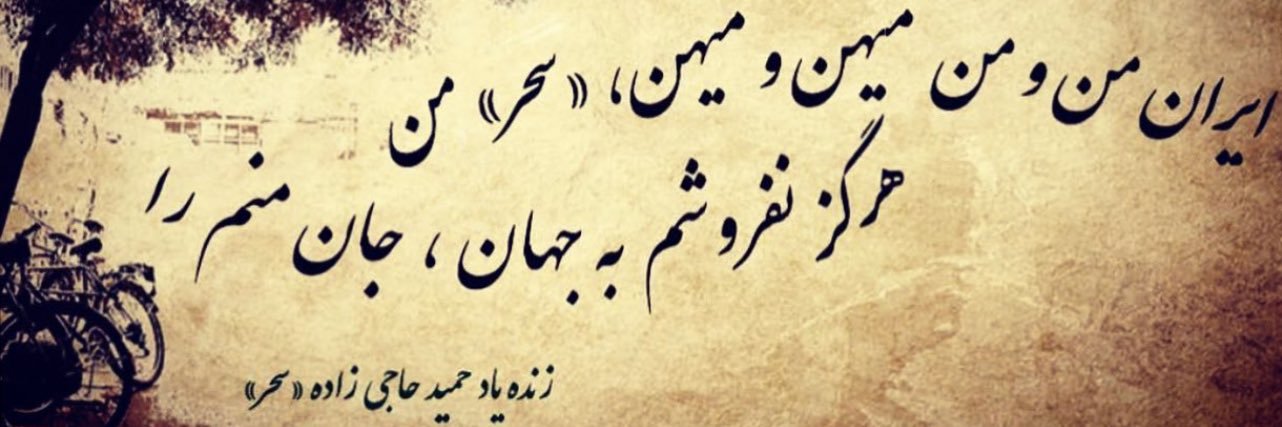 ایران من و من میهن و میهن، «سحر» من
هرگز نفروشم به جهان ، جان منم را
زنده یاد حمید حاجی زاده «سحر»